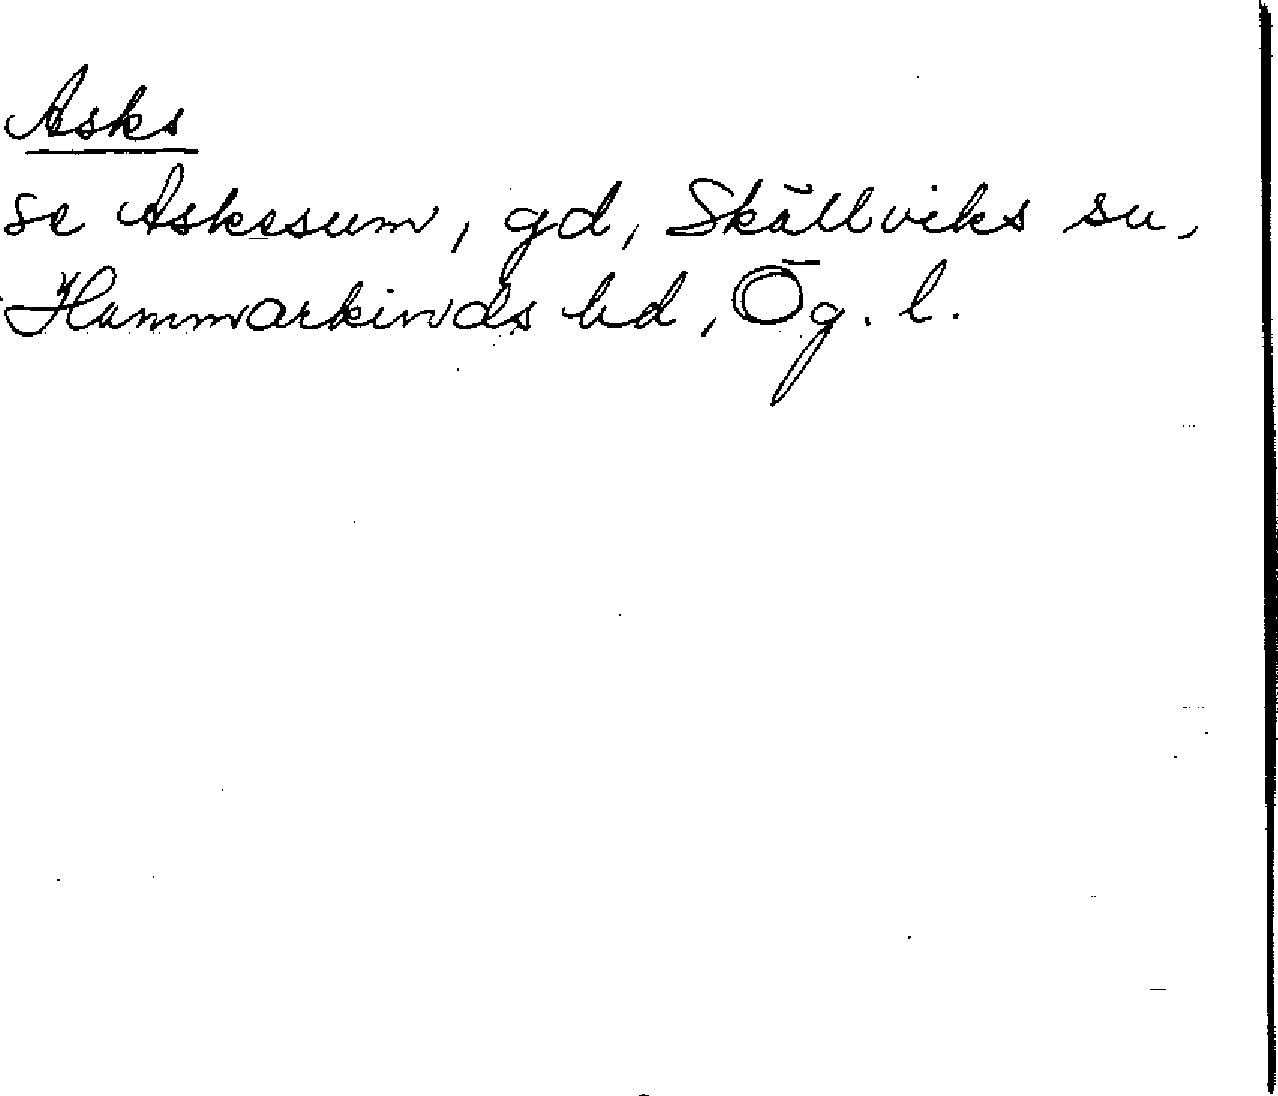 Asks
se Askesum, gd, Skällviks sn,
Hammarkinds hd, Ög. l.